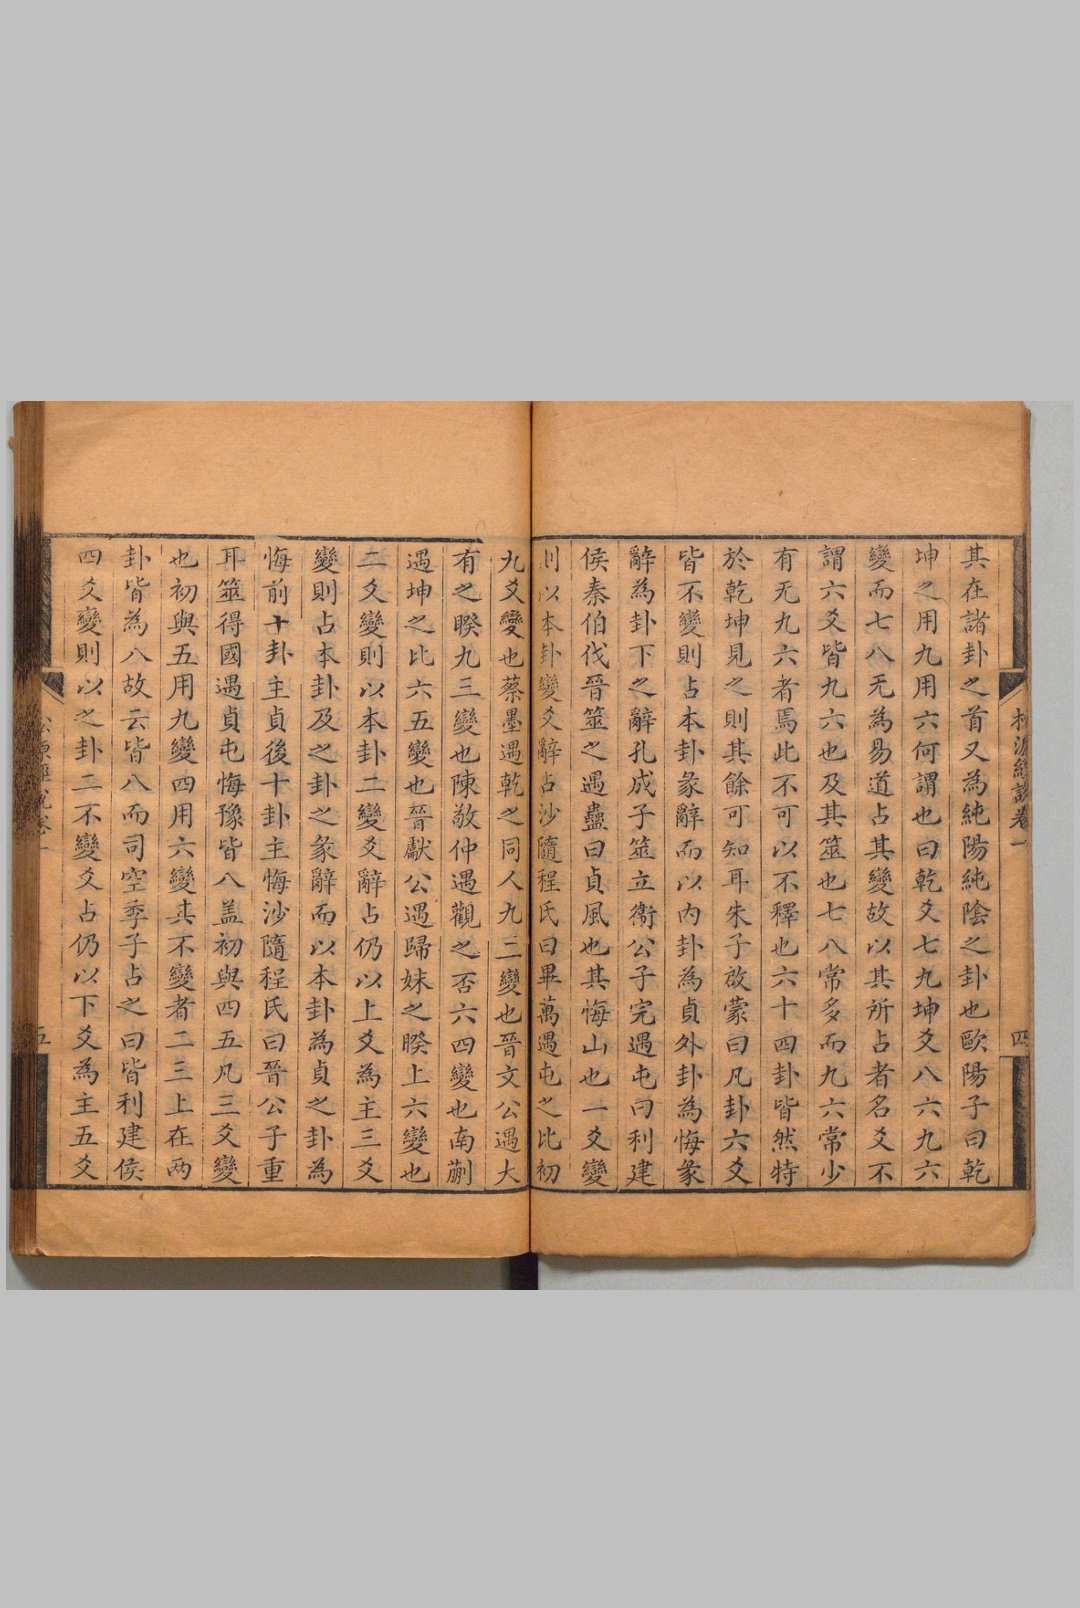 其在諸卦之首又為純陽純陰之卦也歐陽子曰乾
坤之用九用六何謂也曰乾爻七九坤爻八六九六
變而七八无為易道占其變故以其所占者名爻不
謂六爻皆九六也及其筮也七八常多而九六常少
有无九六者焉此不可以不釋也六十四卦皆然特
於乾坤見之則其餘可知耳朱子啟蒙曰凡卦六爻
皆不變則占本卦彖辭而以内卦為貞外卦為悔彖
辭為卦下之辭孔成子筮立衛公子完遇屯曰利建
侯秦伯伐晉筮之遇蠱曰貞風也其悔山也一爻變
則以本卦變爻辭占沙隨程氏曰畢萬遇屯之比初
九爻變也蔡墨遇乾之同人九二變也晉文公遇大
有之睽九三變也陳敬仲遇觀之否六四變也南蒯
遇坤之比六五變也晉獻公遇歸妹之睽上六變也
二爻變則以本卦二變爻辭占仍以上爻為主三爻
變則占本卦及之卦之彖辭而以本卦為貞之卦為
悔前十卦主貞後十卦主悔沙隨程氏曰晉公子重
耳筮得國遇貞屯悔豫皆八盖初與四五凡三爻變
也初與五用九變四用六變其不變者二三上在兩
卦皆為八故云皆八而司空季子占之曰皆利建侯
四爻變則以之卦二不變爻占仍以下爻為主五爻
卷一
四
五